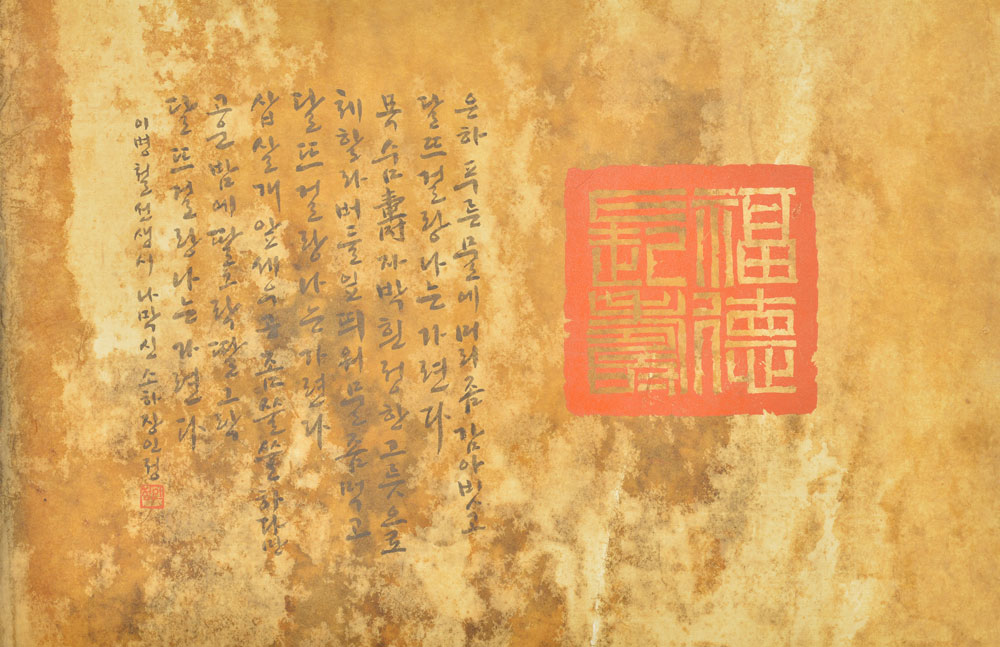 福德
長壽
은하 푸른 물에 머리 좀 감아 빗고
달 뜨걸랑 나는 가련다
목숨 壽자 박힌 정한 그릇으로
체할라 버들잎 띄워 물 좀 먹고
달 뜨걸랑 나는 가련다
삽살개 앞세우곤 좀 쓸쓸하다만
고운 밤에 딸그락 딸그락
달 뜨걸랑 나는 가련다
이병철 선생 시 나막신 소하